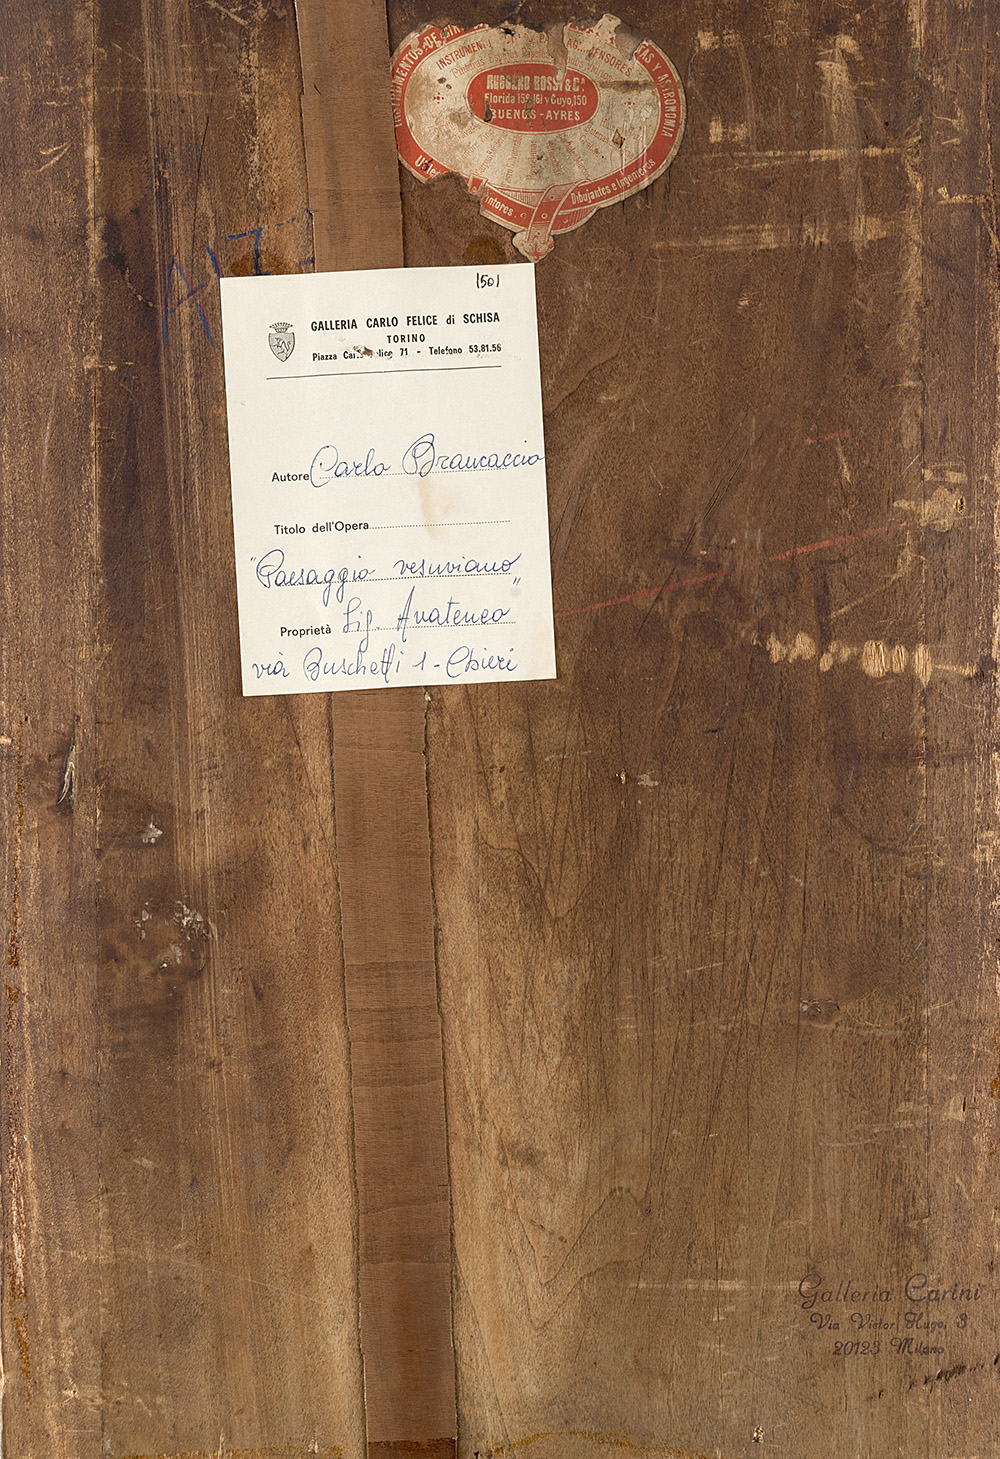 INSTRUMENTOS DE
TAS Y ASTRONOMIA
INSTRUMEN
ENSORES
RUGGERO BOSSI & Cª
Florida 159, 161 y Cuyo, 150
BUENOS-AYRES
intores.
Dibujantes e Ingenieros
A17
1501
GALLERIA CARLO FELICE di SCHISA
TORINO
Piazza Car lice 71 - Telefono 53.81.56
Autore Carlo Brancaccio
Titolo dell'Opera
"Paesaggio vesuviano"
Proprietà Sig. Avataneo
via Buschetti 1 - Chieri
Galleria Carini
Via Victor Hugo, 3
20123 Milano